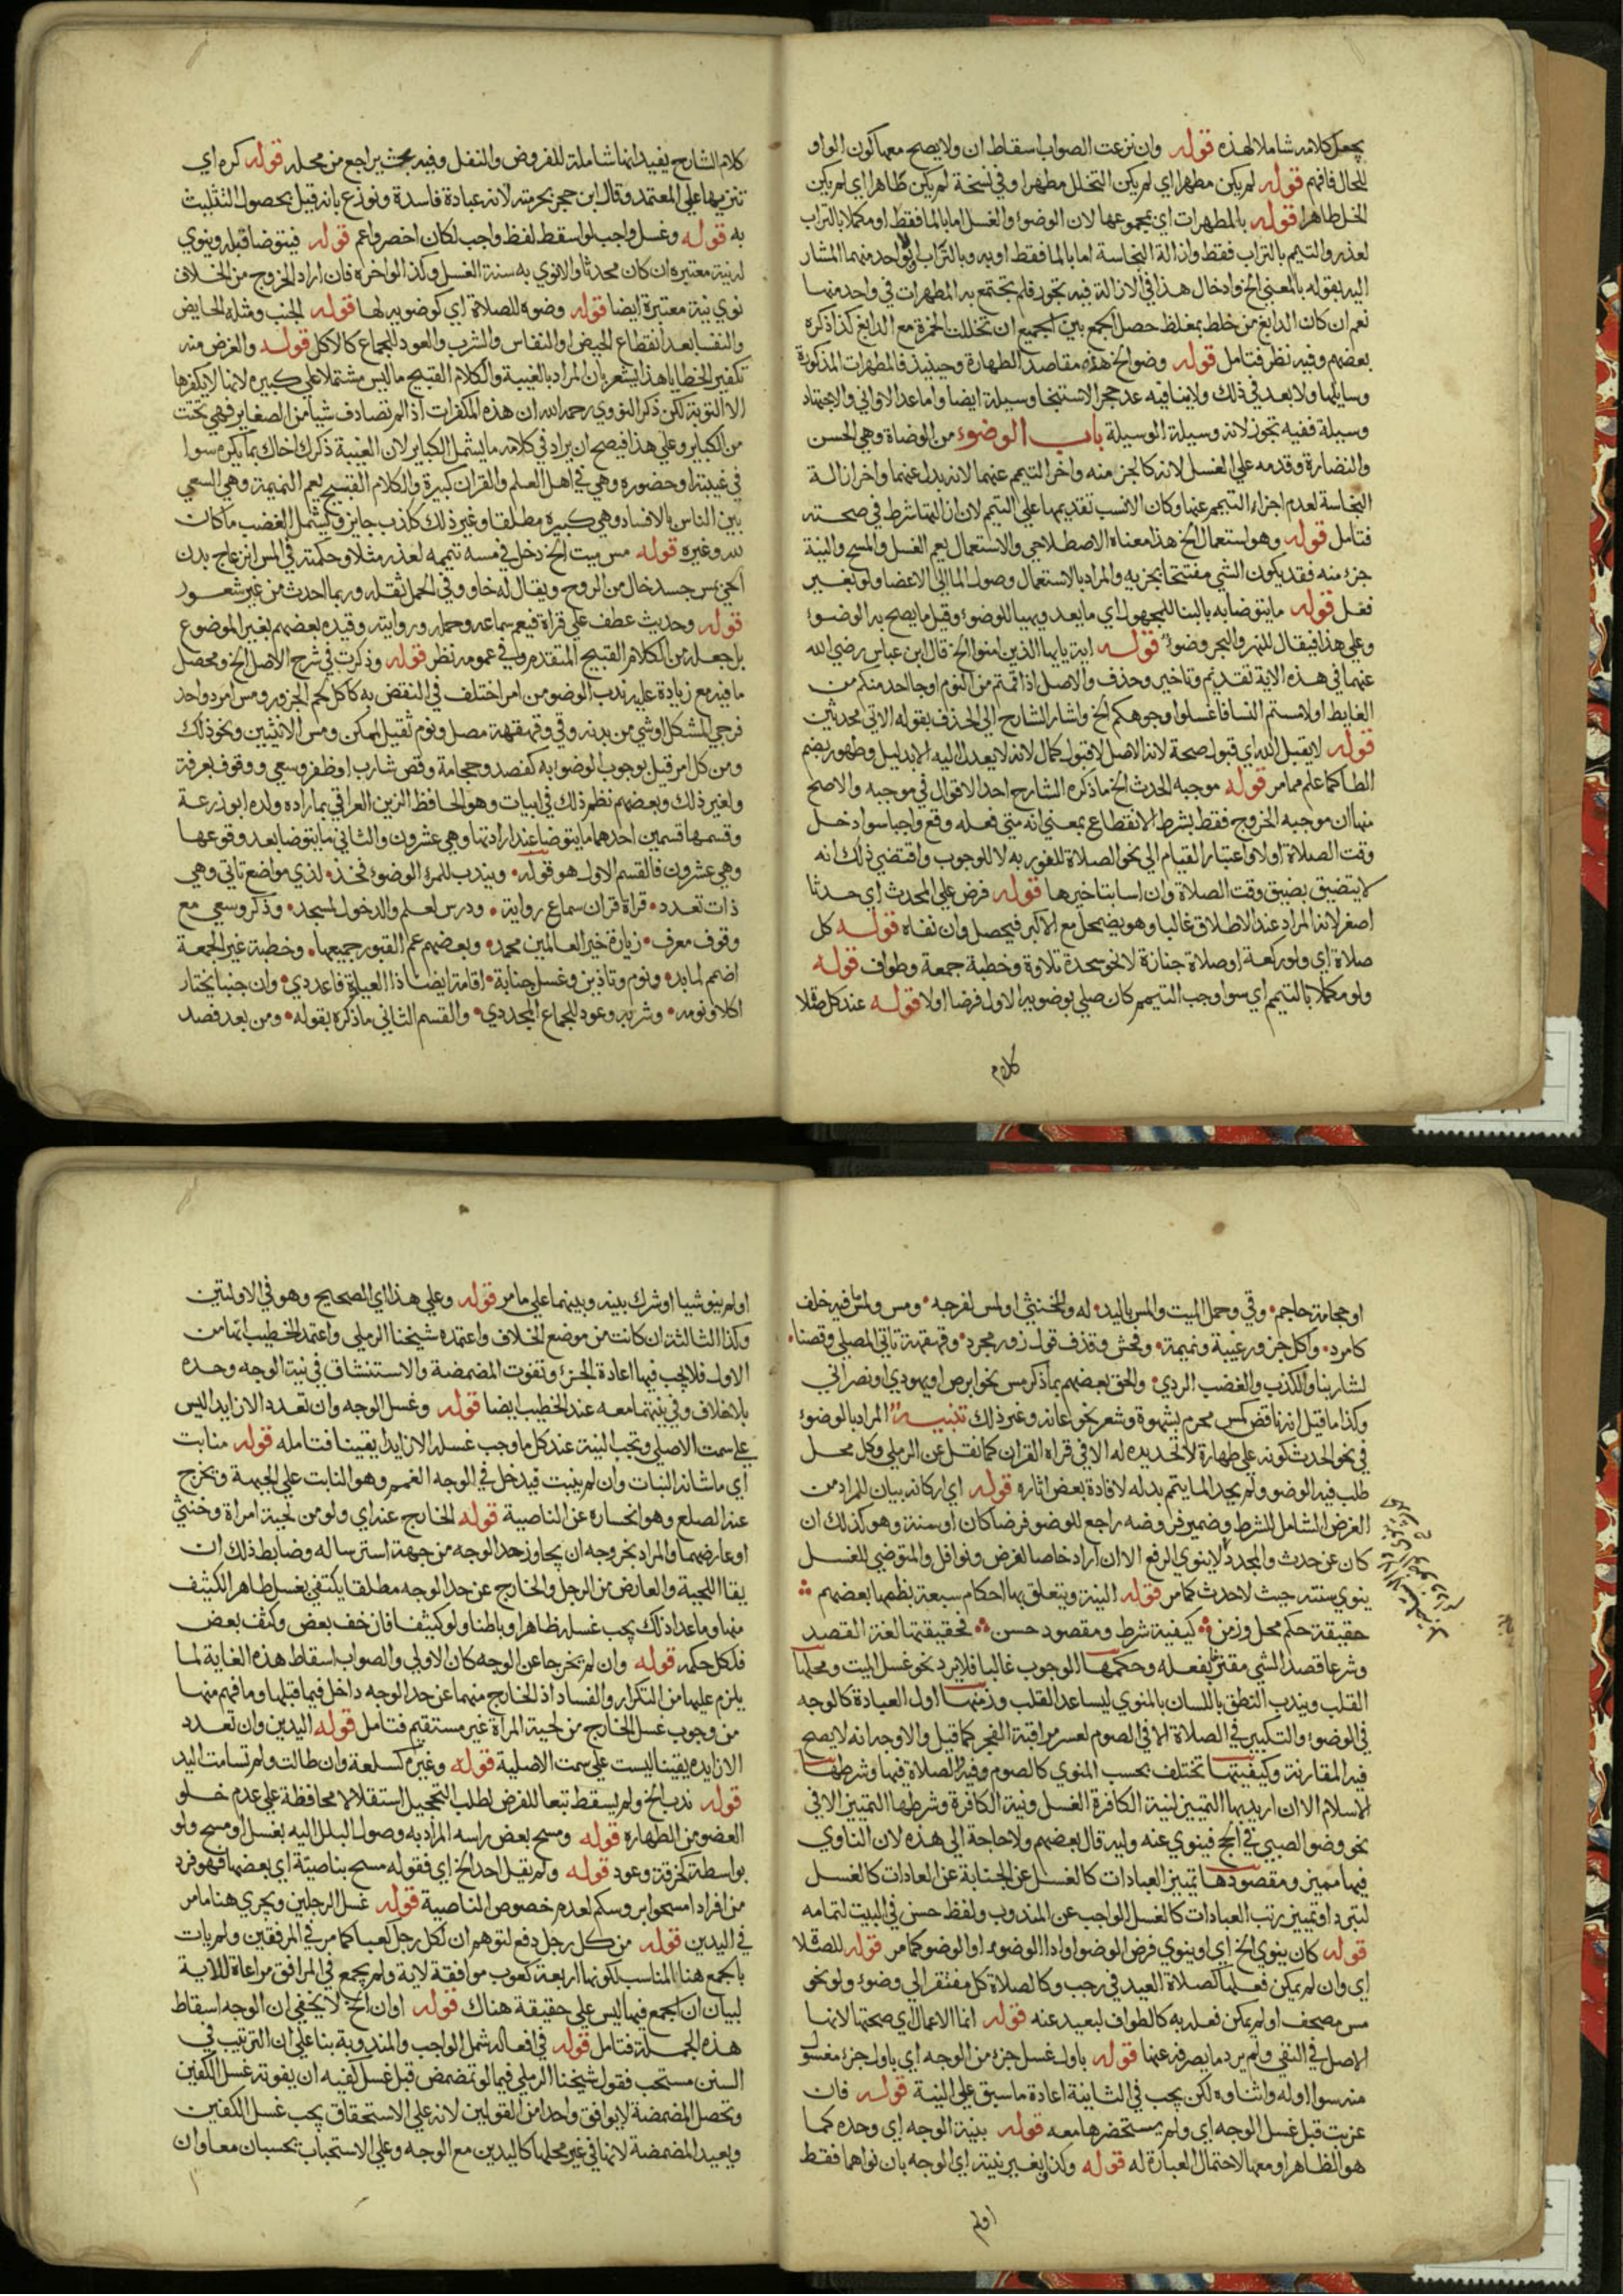 يجعل كلامه شاملا لهذه قوله وان نزعت الصواب اسقاط ان ولا يصح معها كون الواو
للحال فافهم قوله لم يكن مطهرا اي لم يكن التخلل مطهرا وفي نسخة لم يكن طاهرا اي لم يكن
الخل طاهرا قوله بالمطهرات اي بمجموعها لان الوضوء والغسل اما بالما فقط او مكملا بالتراب
لعذر والتيمم بالتراب فقط وازالة النجاسة اما بالما فقط او به وبالتراب لواحد منهما المشار
اليه بقوله بالمعنى الخ وادخال هذا في الازالة فيه تجوز فلم يجتمع به المطهرات في واحد منها
نعم ان كان الدابغ من خلط بمغلظ حصل الجمع بين الجميع ان تخللت الخمرة مع الدابغ كذا ذكره
بعضهم وفيه نظر فتامل قوله وضو الخ هذه مقاصد الطهارة وحينيذ فالمطهرات المذكورة
وسايلها ولا بعد في ذلك ولا ينافيه عد حجر الاستنجا وسيلة ايضا واما عد الاواني والاجتهاد
وسيلة ففيه تجوز لانه وسيلة الوسيلة باب الوضوء من الوضاة وهي الحسن
والنضارة وقدمه على الغسل لانه كالجز منه واخر التيمم عنهما لانه بدل عنهما واخر ازالة
النجاسة لعدم اجزاء التيمم عنها وكان الانسب تقديمها على التيمم لان ازالتها شرط في صحته
فتامل قوله وهو استعمال الخ هذا معناه الاصطلاحي والاستعمال يعم الغسل والمسح والنية
جزء منه فقد يكون الشي مفتتحا بجزيه والمراد بالاستعمال وصول الما الى الاعضا ولو بغير
فعل قوله ما يتوضا به بالبنا للمجهول اي ما يعد ويهيا للوضوء وقيل ما يصح به الوضوء
وعلى هذا فيقال للنهر والبحر وضوء قوله اية يا يها الذين امنوا الخ قال ابن عباس رضي الله
عنهما في هذه الاية تقديم وتاخير وحذف والاصل اذا قمتم من النوم او جا احد منكم من
الغايط او لامستم النسا فاغسلوا وجوهكم الخ واشار الشارح الى الحذف بقوله الاتي محدثين
قوله لا يقبل الله اي قبول صحة لانه الاصل لا قبول كمال لانه لا يعدل اليه الا بدليل وطهور بضم
الطا كما علم مما مر قوله موجبه الحدث الخ ما ذكره الشارح احد الاقوال في موجبه والاصح
منها ان موجبه الخروج فقط بشرط الانقطاع بمعنى انه متى فعله وقع واجبا سوا دخل
وقت الصلاة او لا واعتبار القيام الى نحو الصلاة للفور به لا للوجوب واقتضى ذلك انه
لا يتضيق بضيق وقت الصلاة وان اسا بتاخيرها قوله فرض على المحدث اي حدثا
اصغر لانه المراد عند الاطلاق غالبا وهو يضمحل مع الاكبر فيحصل وان نفاه قوله كل
صلاة اي ولو ركعة او صلاة جنازة لا نحو سجدة تلاوة وخطبة جمعة وطواف قوله
ولو مكملا بالتيمم اي سوا وجب التيمم كان صلى بوضويه الاول فرضا او لا قوله عند كل صلا
كلام
كلام الشارح يفيد انها شاملة للفروض والنفل وفيه بحث يراجع من محله قوله كره اي
تنزيها على المعتمد وقال ابن حجر بحرمته لانه عبادة فاسدة ونوزع بانه قيل بحصول التثليث
به قوله وغسل واجب لو اسقط لفظ واجب لكان اخصر واعم قوله فيتوضا قبله وينوي
له نية معتبرة ان كان محدثا والا نوي به سنة الغسل وكذا لو اخره فان اراد الخروج من الخلاف
نوي نية معتبرة ايضا قوله وضوه للصلاة اي كوضويه لها قوله لجنب ومثله الحايض
والنفسا بعد انقطاع الحيض او النفاس والشرب والعود للجماع كالاكل قوله والغرض منه
تكفير الخطايا هذا يشعر بان المراد بالغيبة والكلام القبيح ما ليس مشتملا على كبيرة لانها لا يكفرها
الا التوبة لكن ذكر النووي رحمه الله ان هذه المكفرات اذا لم تصادف شيا من الصغاير فهي تحت
من الكباير وعلى هذا فيصح ان يراد في كلامه ما يشمل الكباير لان الغيبة ذكرك اخاك بما يكره سوا
في غيبته او حضوره وهي في اهل العلم والقران كبيرة والكلام القبيح يعم النميمة وهي السعي
بين الناس بالافساد وهي كبيرة مطلقا وغير ذلك كاذب جايز ويشمل الغضب ما كان
لله وغيره قوله مس ميت الخ دخل في مسه تيممه لعذر مثلا وحكمته في المس انزعاج بدن
الحي بمس جسد خال من الروح ويقال له خاو وفي الحمل ثقله وربما احدث من غير شعور
قوله وحديث عطف على قراة فيعم سماعه وحمله وروايته وقيده بعضهم بغير الموضوع
بل جعله من الكلام القبيح المتقدم وفي عمومه نظر قوله وذكرت في شرح الاصل الخ ومحصل
ما فيه مع زيادة عليه ندب الوضو من امر اختلف في النقض به كاكل لحم الجزور ومس امرد واحد
فرجي المشكل او شي من بدنه وقي وقهقهة مصل ونوم ثقيل الممكن ومس الانثيين ونحو ذلك
ومن كل امر قيل بوجوب الوضوء به كفصد وحجامة وقص شارب او ظفر وسعي ووقوف بعرفة
ولغير ذلك وبعضهم نظم ذلك في ابيات وهو الحافظ الزين العراقي بما زاده ولده ابو زرعة
وقسمها قسمين احدهما ما يتوضا عند ارادتها وهي عشرون والثاني ما يتوضا بعد وقوعها
وهي عشرون فالقسم الاول هو قوله • ويندب للمرء الوضوء فخذ • لذي مواضع تاتي وهي
ذات تعدد • قراة قران سماع رواية • ودرس لعلم والدخول لمسجد • وذكر وسعي مع
وقوف معرف • زيارة خير العالمين محمد • وبعضهم عم القبور جميعها • وخطبة غير الجمعة
اضمم لما بد • ونوم وتاذين وغسل جنابة • اقامة ايضا ذا العبادة فاعددي • وان جنبا يختار
اكلا ونومه • وشربه وعود للجماع المجددي • والقسم الثاني ما ذكره بقوله • ومن بعد فصد
او حجامة حاجم • وقي وحمل الميت والمس باليد • له والخنثى او لمس لفرجه • ومس ولمس فيه خلف
كامرد • واكل جزور غيبة ونميمة • وفحش وقذف قول زور مجرد • وقهقهة تاتي المصلي وقصنا •
لشاربنا والكذب والغضب الردي • والحق بعضهم بما ذكر مس نحو ابرص او يهودي او نصراني
وكذا ما قيل انه ناقض كمس محرم بشهوة وشعر نحو عانة وغير ذلك تنبيه المراد بالوضوء
في نحو الحدث كونه على طهارة لا تجديده له الا في قراة القران كما نقل عن الرملي وكل محل
طلب فيه الوضو ولم يجد الما يتمم بدله لافادة بعض اثاره قوله اي اركانه بيان للمراد من
الفرض الشامل للشرط وضمير فروضه راجع للوضو فرضا كان او سنة وهو كذلك ان
كان عن حدث والمجدد لا ينوي الرفع الا ان اراد خاصا لغرض ونوافل والمتوضي للغسل
ينوي سنته حيث لا حدث كما مر قوله النية ويتعلق بها احكام سبعة نظمها بعضهم
حقيقة حكم محل وزمن • كيفية شرط ومقصود حسن • فحقيقتها لغة القصد
وشرعا قصد الشي مقترنا بفعله وحكمها الوجوب غالبا فلا يرد نحو غسل الميت ومحلها
القلب ويندب النطق باللسان بالمنوي ليساعد القلب وزمنها اول العبادة كالوجه
في الوضوء والتكبير في الصلاة الا في الصوم لعسر مراقبة الفجر كما قيل والاوجه انه لا يصح
فيه المقارنة وكيفيتها تختلف بحسب المنوي كالصوم وفيه الصلاة فيها وشرطها
الاسلام الا ان اريد بها التمييز لنية الكافرة الغسل ونية الكافرة وشرطها التمييز الا في
نحو وضو الصبي في الحج فينوي عنه وليه قال بعضهم ولا حاجة الى هذه لان الناوي
فيها مميز ومقصودها تمييز العبادات كالغسل عن الجنابة عن العادات كالغسل
لتبرد او تمييز رتب العبادات كالغسل الواجب عن المندوب ولفظ حسن في البيت لتمامه
قوله كان ينوي الخ اي او ينوي فرض الوضو او ادا الوضو او الوضو كما مر قوله للصلا
اي وان لم يمكن فعلها كصلاة العيد في رجب وكالصلاة كل مفتقر الى وضوء ولو نحو
مس مصحف او لم يمكن فعله به كالطواف لبعيد عنه قوله انما الاعمال اي صحتها لانها
الاصل في النفي ولم يرد ما يصرفه عنها قوله باول غسل جزء من الوجه اي باول جزء مغسول
منه سوا اوله واثناوه لكن يجب في الثانية اعادة ما سبق على النية قوله فان
عزبت قبل غسل الوجه اي ولم يستحضرها معه قوله بنية الوجه اي وحده كما
هو الظاهر او معها لاحتمال العبارة له قوله وكذا بغير نية اي الوجه بان نواهما فقط
اولم
او لم ينو شيا او شرك بينه وبينهما على ما مر قوله وعلى هذا اي الصحيح وهو في الاولتين
وكذا الثالثة ان كانت من موضع الخلاف واعتمده شيخنا الرملي واعتمد الخطيب انها من
الاول فلا يجب فيها اعادة الجزء وتفوت المضمضة والاستنشاق في نية الوجه وحده
بلا خلاف وفي نيتها معه عند الخطيب ايضا قوله وغسل الوجه وان تعدد الا زايدا ليس
على سمت الاصلي وتجب النية عند كل ما وجب غسله الا زايدا يقينا فتامله قوله منابت
اي ما شانه النبات وان لم ينبت فيدخل في الوجه الغمم وهو النابت على الجبهة ويخرج
عنه الصلع وهو انحساره عن الناصية قوله الخارج عنه اي ولو من لحية امراة وخنثى
او عارضهما والمراد بخروجه ان يجاوز حد الوجه من جهة استرساله وضابط ذلك ان
يقال اللحية والعارض من الرجل والخارج عن حد الوجه مطلقا يكتفى بغسل ظاهر الكثيف
منها وما عدا ذلك يجب غسله ظاهرا وباطنا ولو كثيفا فان خف بعض وكثف بعض
فلكل حكمه قوله وان لم يخرجا عن الوجه كان الاولى والصواب اسقاط هذه الغاية لما
يلزم عليها من التكرار والفساد اذ الخارج منهما عن حد الوجه داخل فيما قبلها وما فهم منها
من وجوب غسل الخارج من لحية المراة غير مستقيم فتامل قوله اليدين وان تعدد
الا زايده يقينا ليست على سمت الاصلية قوله وغيره كسلعة وان طالت ولم تسامت اليد
قوله ندب الخ ولم يسقط تبعا للفرض لطلب التحجيل استقلالا محافظة على عدم خلو
العضو من الطهارة قوله ومسح بعض راسه المراد به وصول البلل اليه بغسل او مسح ولو
بواسطة كخرقة وعود قوله ولم يقل احد الخ اي فقوله مسح بناصيته اي بعضها فهو فرد
من افراد امسحوا بروسكم لعدم خصوص الناصية قوله غسل الرجلين ويجري هنا ما مر
في اليدين قوله من كل رجل دفع لتوهم ان لكل رجل كعبا كما مر في المرفقين ولم يات
بالجمع هنا المناسب لكونها اربعة كعوب موافقة لاية ولم يجمع في المرافق مراعاة للاية
لبيان ان الجمع فيها ليس على حقيقة هناك قوله او ان الخ لا يخفى ان الوجه اسقاط
هذه الجملة فتامل قوله في افعاله شمل الواجب والمندوبة بنا على ان الترتيب في
السنن مستحب فقول شيخنا الرملي فيما لو تمضمض قبل غسل كفيه ان يفوته غسل الكفين
وتحصل المضمضة لا يوافق واحدا من القولين لانه على الاستحقاق يجب غسل الكفين
ويعيد المضمضة لانها في غير محلها كاليدين مع الوجه وعلى الاستحباب تحسبان معا وان